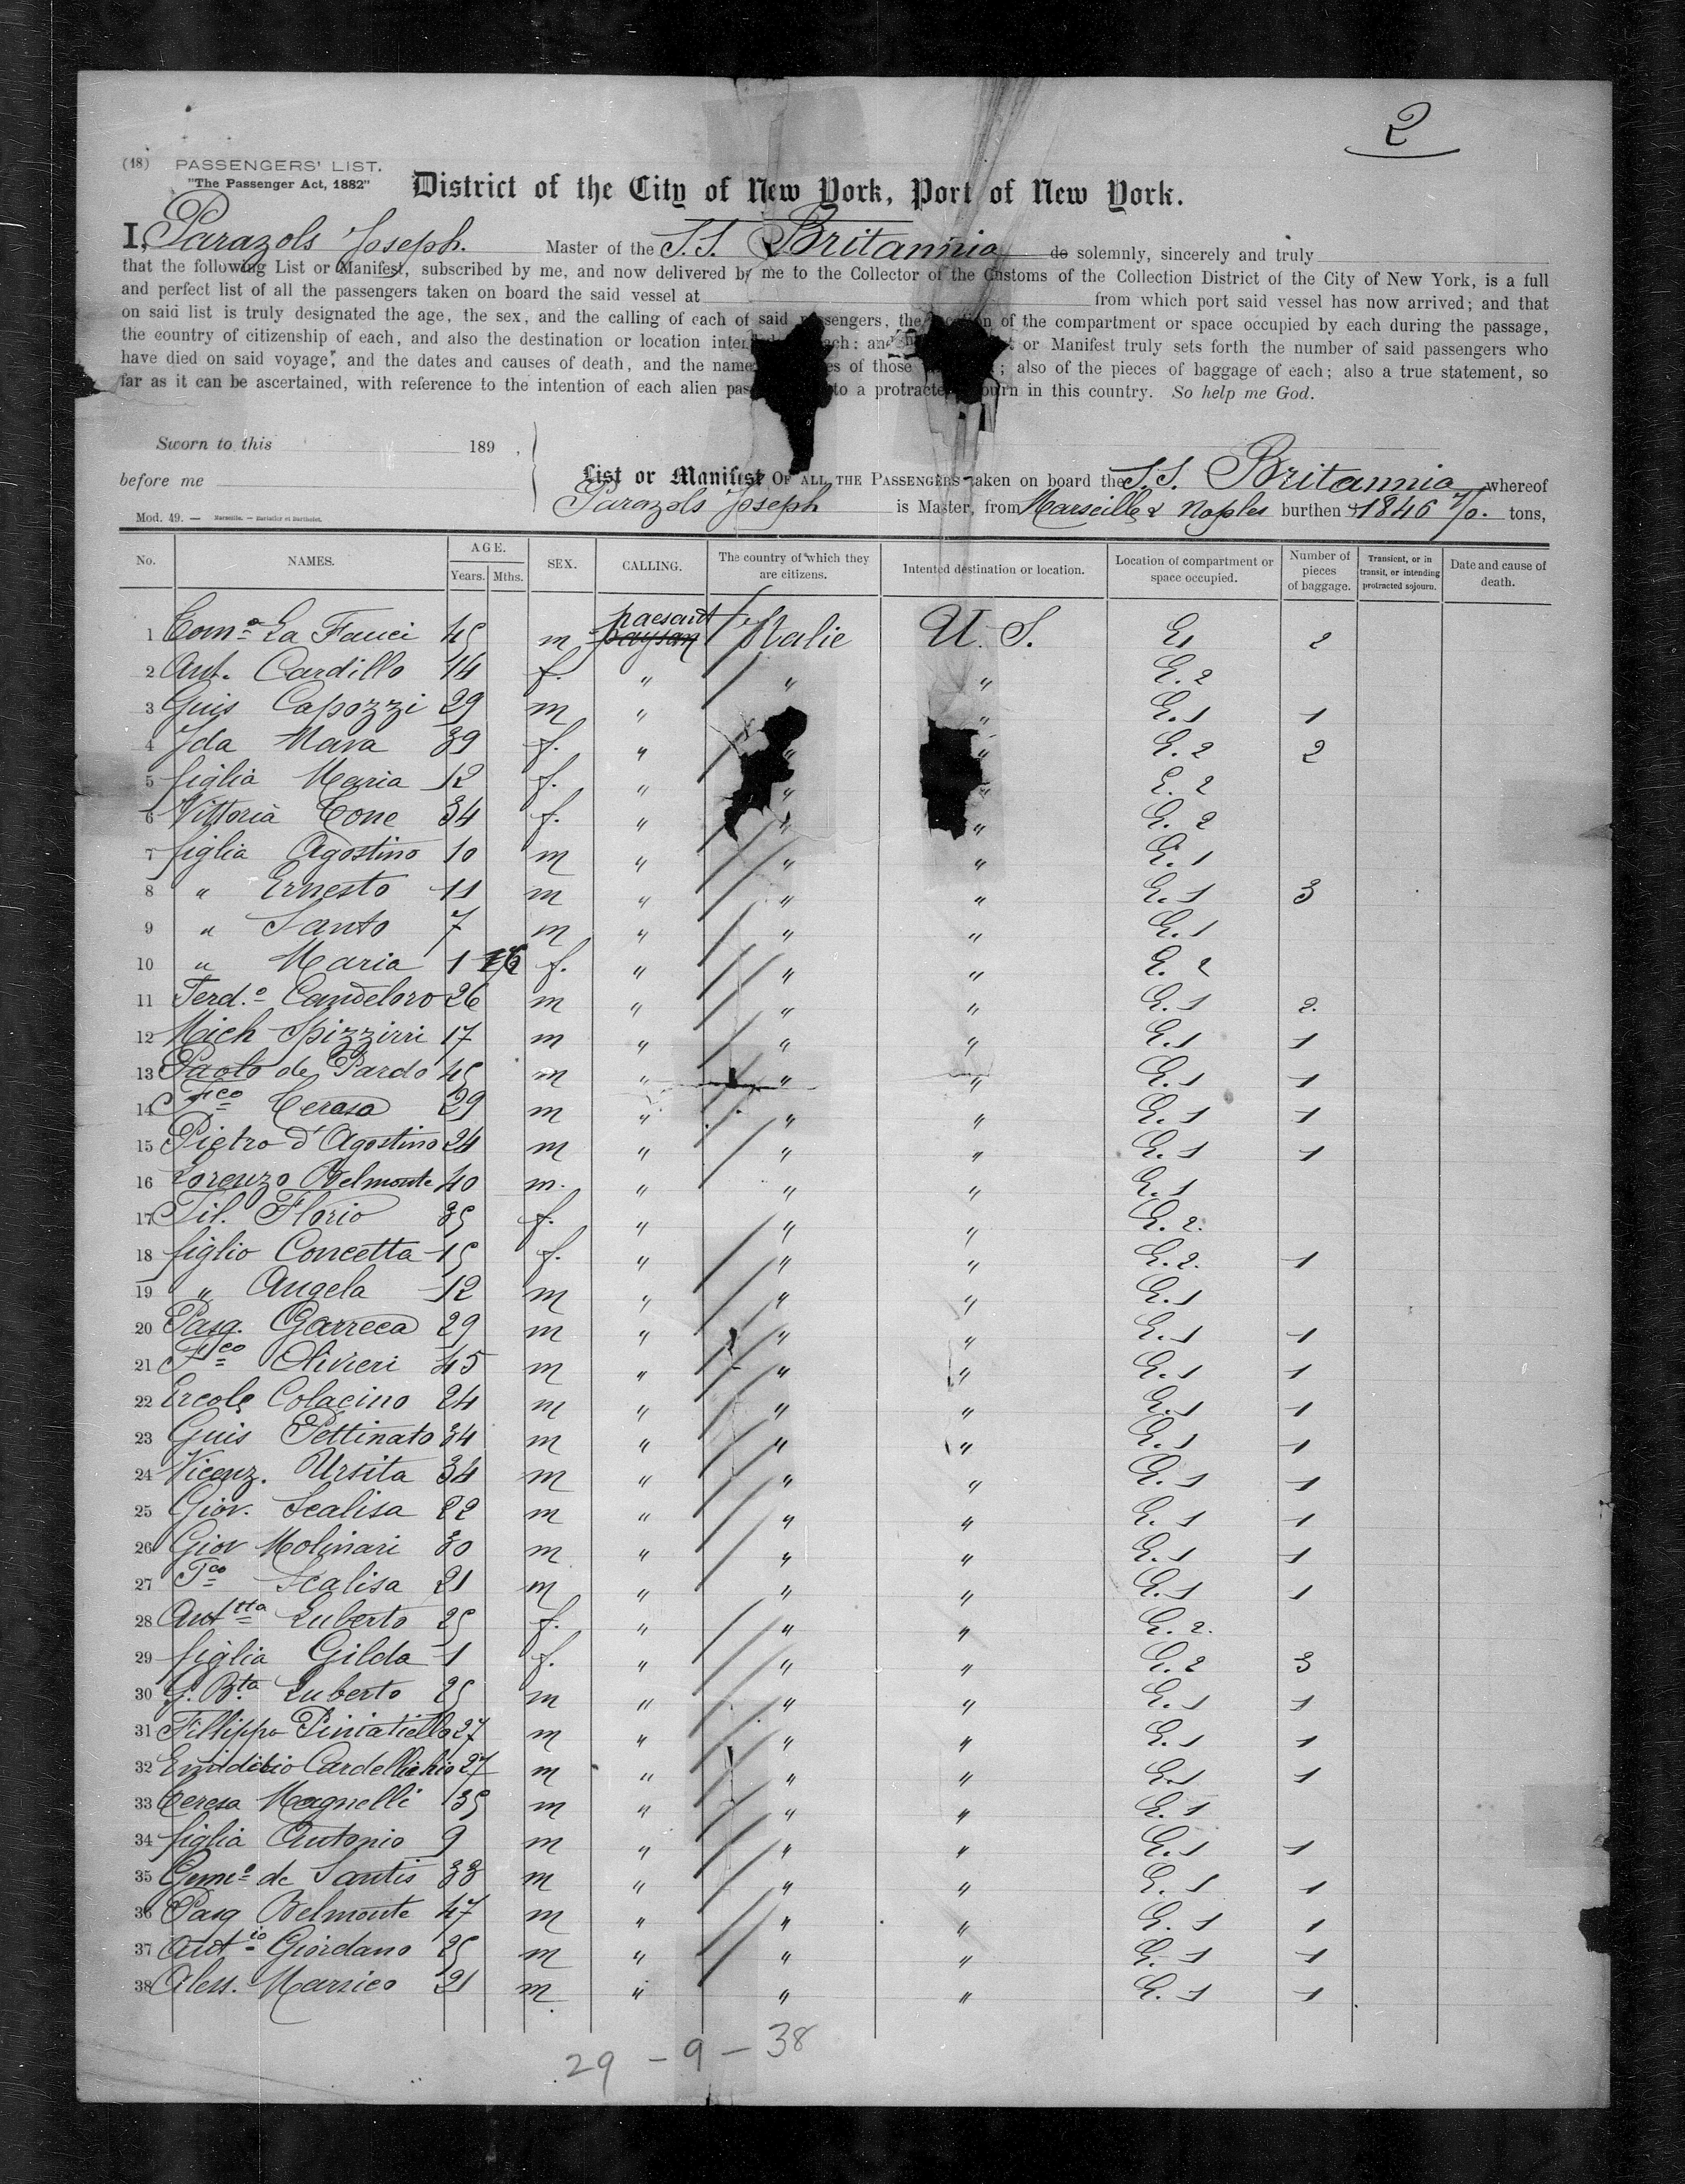 2
(18) PASSENGERS' LIST.
"The Passenger Act, 1882"
District of the City of New York, Port of New York.
I, Parazols Joseph. Master of the S.S. Britannia do solemnly, sincerely and truly
that the following List or Manifest, subscribed by me, and now delivered by me to the Collector of the Customs of the Collection District of the City of New York, is a full
and perfect list of all the passengers taken on board the said vessel at from which port said vessel has now arrived; and that
on said list is truly designated the age, the sex, and the calling of each of said passengers, the location of the compartment or space occupied by each during the passage,
the country of citizenship of each, and also the destination or location ach; and or Manifest truly sets forth the number of said passengers who
have died on said voyage, and the dates and causes of death, and the name es of those ; also of the pieces of baggage of each; also a true statement, so
far as it can be ascertained, with reference to the intention of each alien to a protracted sojourn in this country. So help me God.
Sworn to this 189 ,
before me
List or Manifest OF ALL THE PASSENGERS taken on board the S.S. Britannia whereof
Parazols Joseph is Master, from Marseille & Naples burthen 1846 tons,
Mod. 49. — Marseille. — Barlatier et Barthelet.
No. NAMES. AGE. Years. Mths. SEX. CALLING. The country of which they are citizens. Intented destination or location. Location of compartment or space occupied. Number of pieces of baggage. Transient, or in transit, or intending protracted sojourn. Date and cause of death.
1 Com.o La Fauci 45 m paysan paesant Italie U. S. E1 2
2 Ant. Cardillo 14 f. " " " E. 2
3 Guis Capozzi 29 m " " E. 1 1
4 Ida Mava 39 f. " " " E. 2 2
5 figlia Maria 12 f. " " " E. 2
6 Vittoria Cone 34 f. " " " E. 2
7 figlia Agostino 10 m " " " E. 1
8 " Ernesto 11 m " " " E. 1 3
9 " Santo 7 m " " " E. 1
10 " Maria 1 f. " " " E. 2
11 Ferd.o Candeloro 26 m " " " E. 1 2.
12 Mich Spizzirri 17 m " " " E. 1 1
13 Paolo de Pardo 45 m " " " E. 1 1
14 Fco Cerasa 29 m " " " E. 1 1
15 Pietro d'Agostino 24 m " " " E. 1 1
16 Lorenzo Belmonte 40 m. " " " E. 1
17 Fil. Florio 35 f. " " " E. 2.
18 figlio Concetta 15 f. " " " E. 2. 1
19 " Angela 12 m " " " E. 1
20 Pasq. Garreca 29 m " " " E. 1 1
21 Fco Olivieri 45 m " " " E. 1 1
22 Ercole Colacino 24 m " " " E. 1 1
23 Guis Pettinato 34 m " " " E. 1 1
24 Vicenz. Ursita 34 m " " " E. 1 1
25 Giov. Scalisa 22 m " " " E. 1 1
26 Giov Molinari 30 m " " " E. 1 1
27 Fco Scalisa 21 m " " " E. 1 1
28 Anttta Luberto 25 f. " " " E. 2.
29 figlia Gilda 1 f. " " " E. 2 3
30 G. Bta Luberto 25 m " " " E. 1 1
31 Fillippo Piniatiello 27 m " " " E. 1 1
32 Cardellichio 27 m " " " E. 1 1
33 Ceresa Magnelli 35 m " " " E. 1
34 figlia Antonio 9 m " " " E. 1 1
35 Gem.o de Santis 33 m " " " E. 1 1
36 Pasq Belmonte 47 m " " " E. 1 1
37 Antio Giordano 25 m " " " E. 1 1
38 Aless. Marsico 21 m " " " E. 1 1
29 - 9 - 38